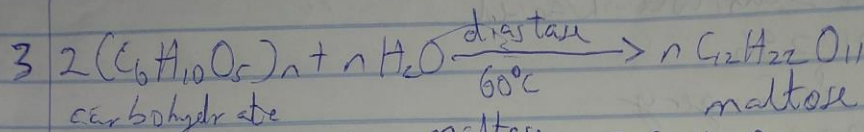 3 2(C6H10O5)n + nH2O diastase 60°C → n C12H22O11
carbohydrate maltose